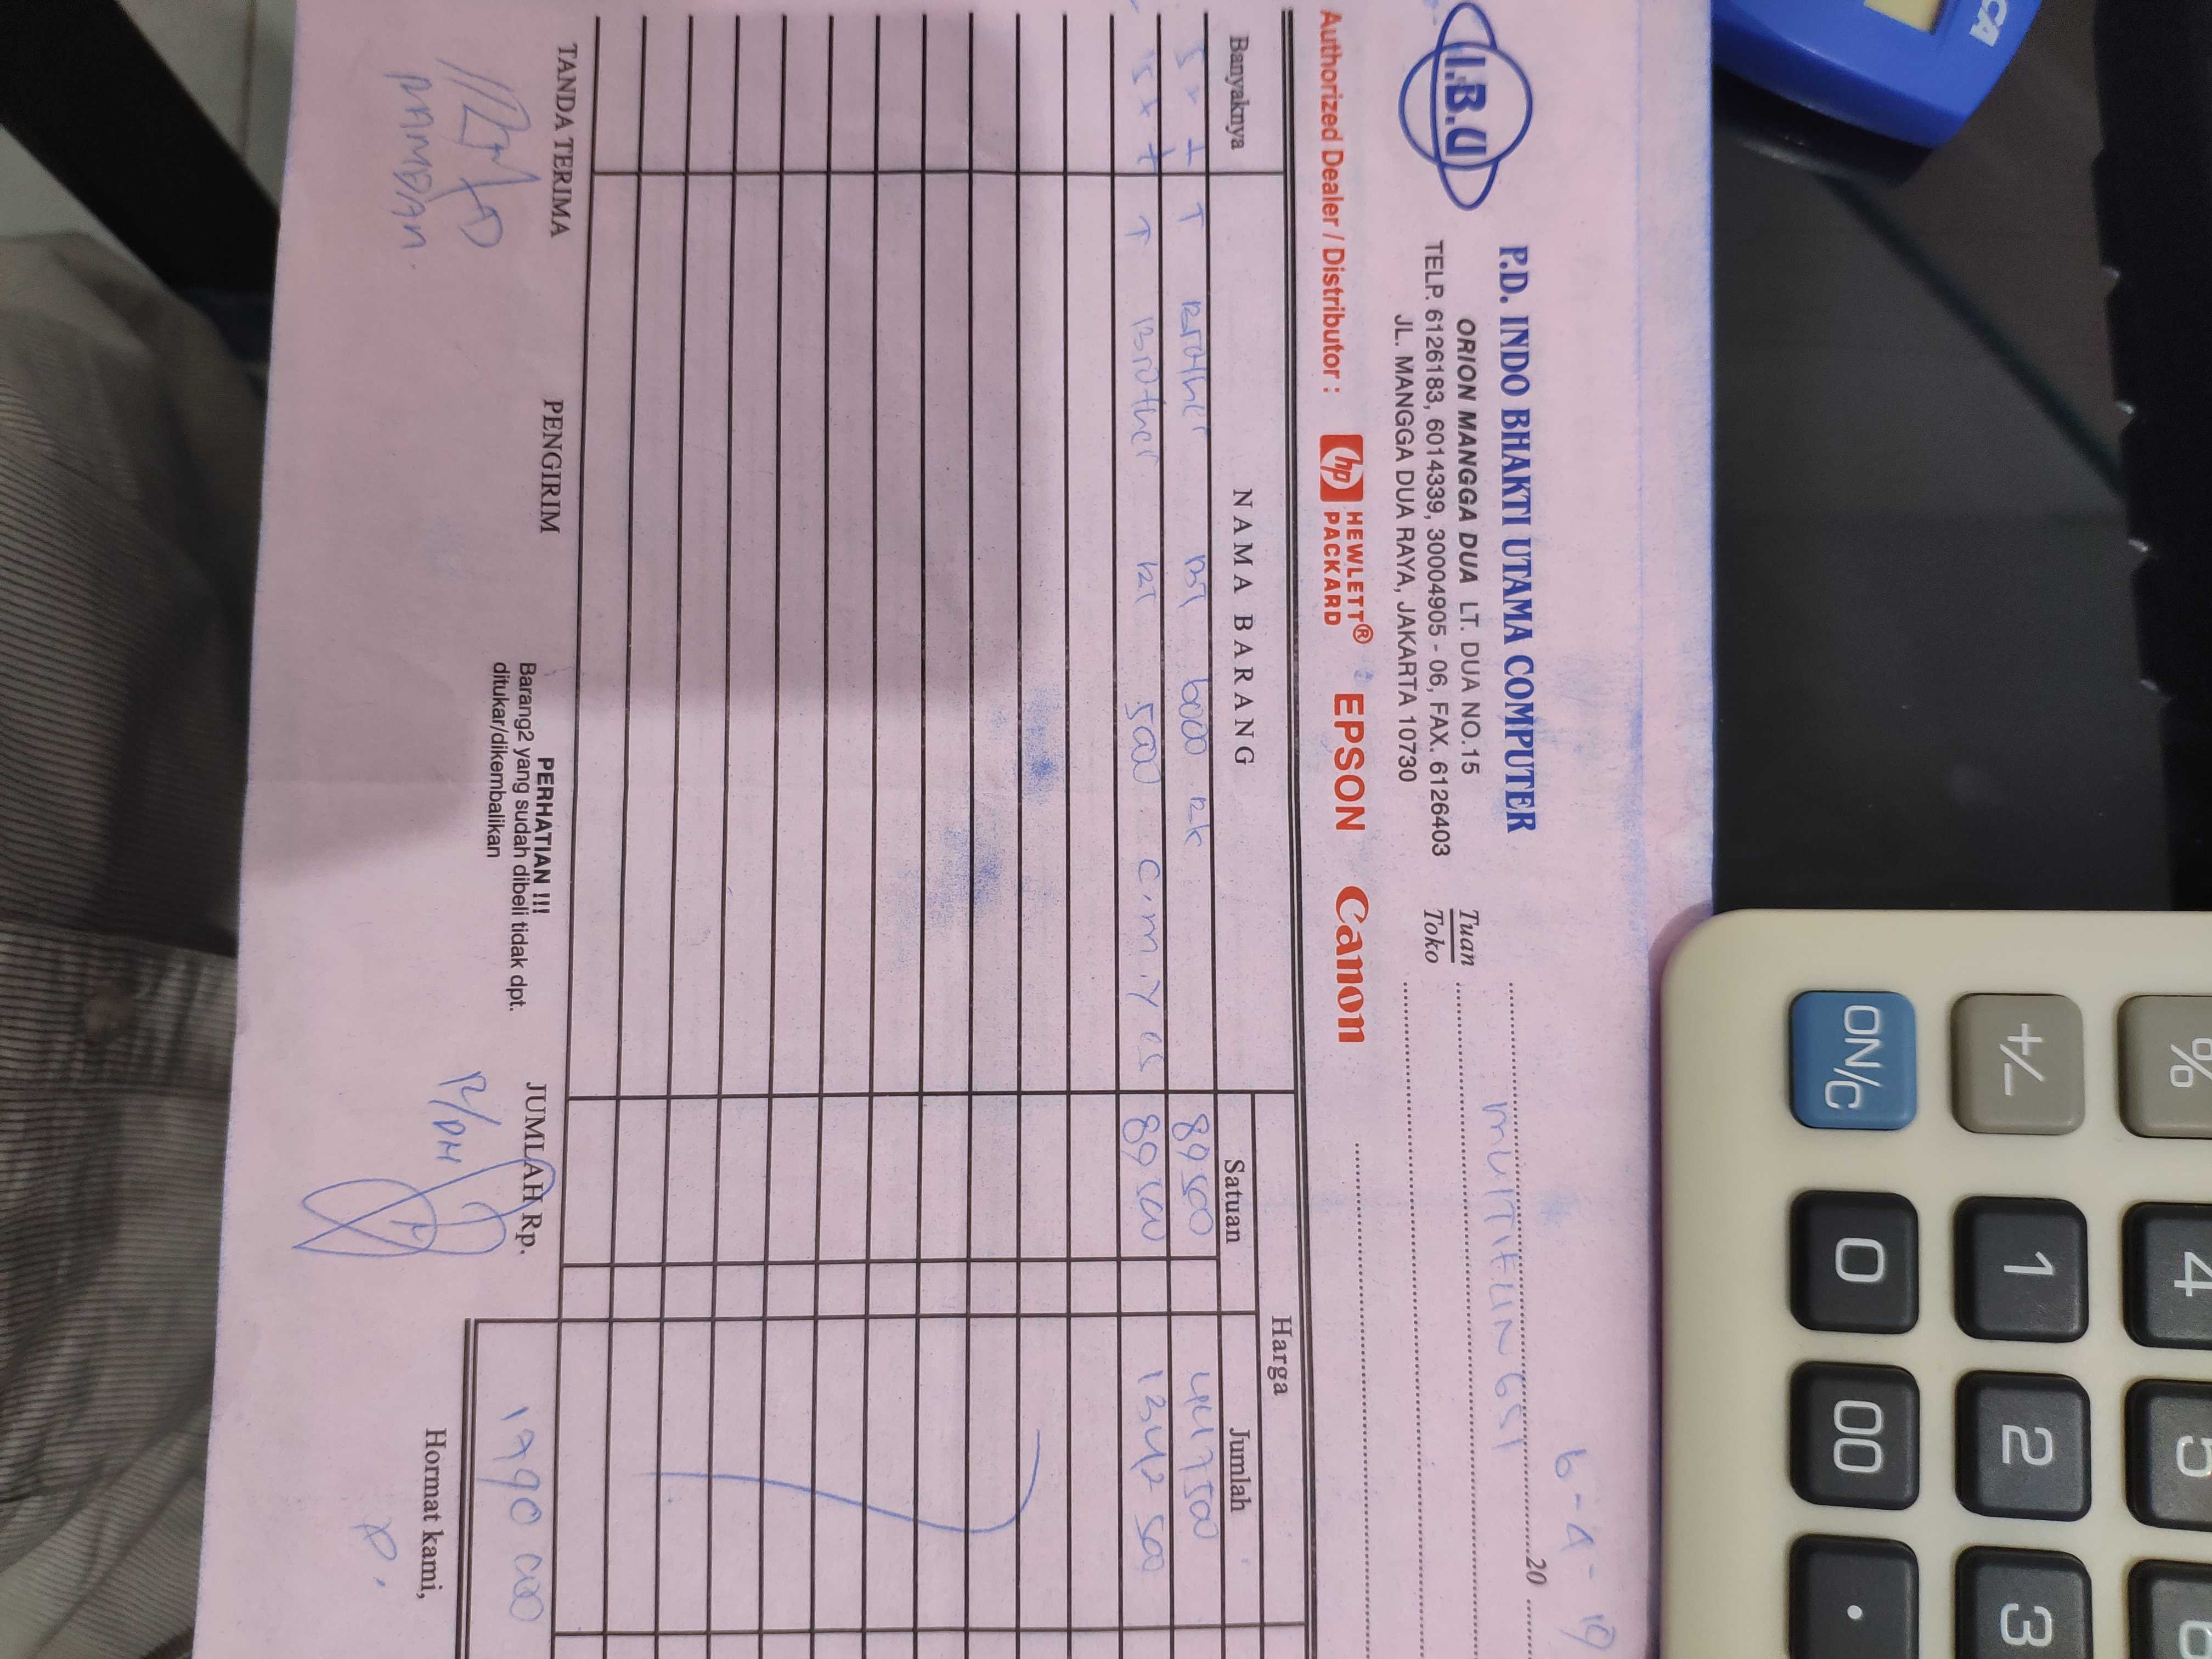 I.B.U
P.D. INDO BHAKTI UTAMA COMPUTER
ORION MANGGA DUA LT. DUA NO.15
TELP. 6126183, 6014339, 30004905 - 06, FAX. 6126403
JL. MANGGA DUA RAYA, JAKARTA 10730
6-9-19
20
Tuan
Toko
MULTIFUNGSI
Authorized Dealer / Distributor : hp HEWLETT® PACKARD EPSON Canon
Banyaknya NAMA BARANG Harga
Satuan Jumlah
5 x T Brother BT 6000 BK 89500 447500
15 x T Brother BT 5000 C.M.Y 89500 1342500
TANDA TERIMA PENGIRIM JUMLAH Rp. 1790000
PERHATIAN !!!
Barang2 yang sudah dibeli tidak dpt.
ditukar/dikembalikan
Hormat kami,
RAMDAN
ON/C +/- %
0 1 4
00 2 5
. 3 6